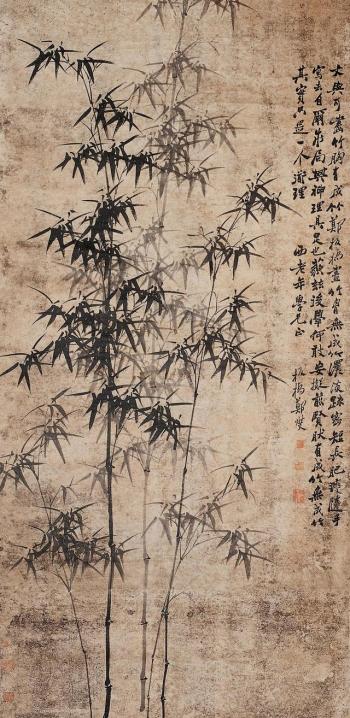 文與可畫竹胸有成竹鄭板橋畫竹胸無成竹濃淡疏密短長肥瘦隨手
寫去自爾成局其神理具足也藐茲後學何敢妄擬前賢然有成竹無成竹
其實只是一个道理
老年學兄正
板橋鄭燮